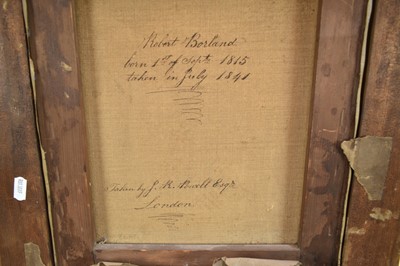 Robert Borland
born 1st of Septr 1815
taken in July 1841
Taken by J. R. Esqr
London